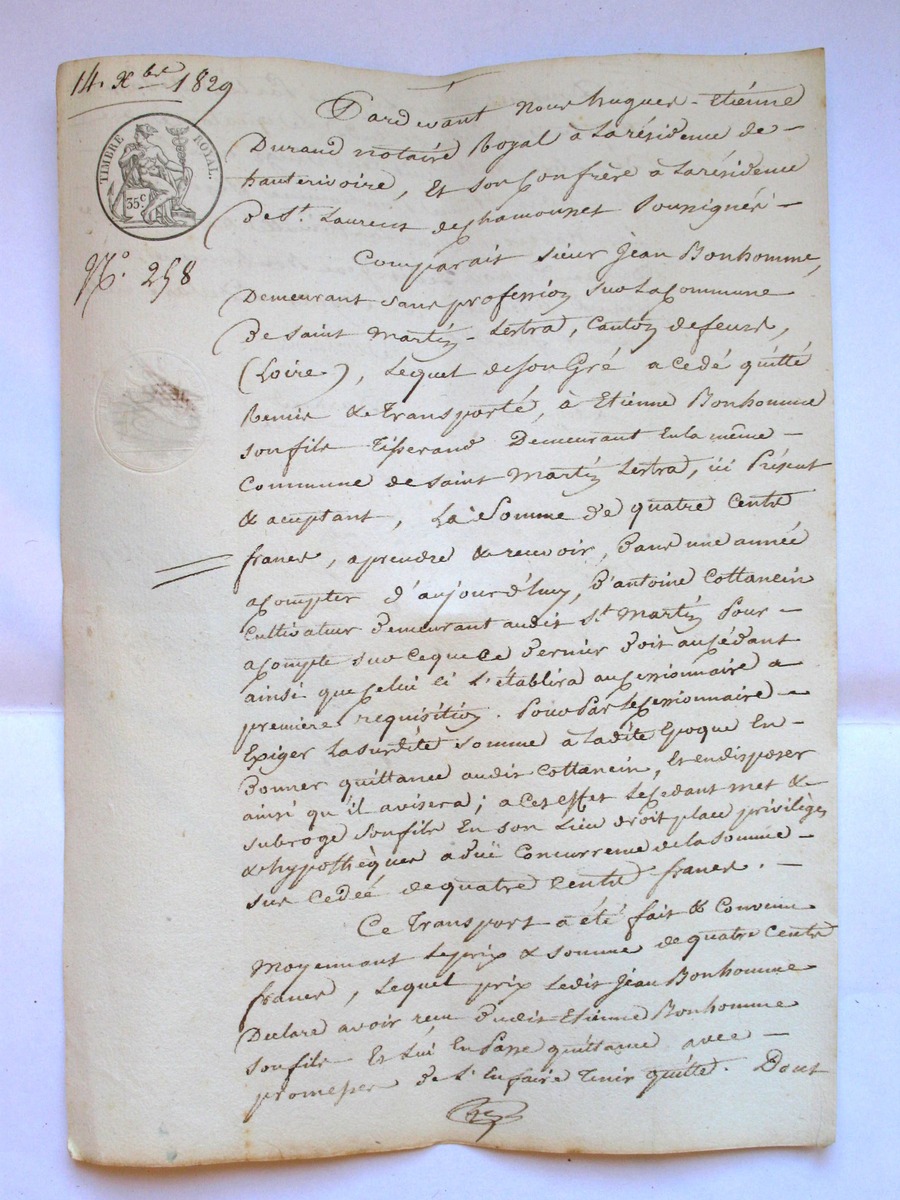 14. Xbre 1829
TIMBRE ROYAL.
35c.
No. 258
Pardevant Nous hugues - Etiénne
Durand notaire Royal à la résidence de -
hauterivoire, et son Confrère à la résidence
de St. Laurent de Chamousset Soussignés -
Comparait Sieur Jean Bonhomme,
Demeurant sans profession sur la Commune
de Saint Martin - Lestra, Canton de feurs,
(Loire), Lequel de son Gré a Cedé quitté
Remis & transporté, à Etienne Bonhomme
son fils tisserand Demeurant en la même -
Commune de Saint Martin Lestra, ici Présent
& aceptant, La Somme de quatre Cents
francs, aprendre & recevoir, dans une année
acompter d'aujourd'huy, d'antoine Cottancin
Cultivateur demeurant audit St. Martin Pour -
acompte sur ceque Ce dernier doit au Cédant
ainsi que Celui ci L'établira au Cessionnaire a
première requisition. Pour Par le Cessionnaire -
Exiger la susdite Somme à ladite Epoque En -
donner quittance audit Cottancin, Et en disposer
ainsi qu'il avisera; a Cet effet Le Cedant met &
subroge son fils En son Lieu droit place privilèges
& hypothèques a duë Concurrence de la Somme -
sus Cedée de quatre Cents francs. -
Ce transport a été fait & Convenu
Moyennant Le prix & somme de quatre Cents
francs, Lequel prix Ledit Jean Bonhomme
Declare avoir reçu dudit Etienne Bonhomme
son fils Et Lui En Passe quittance avec -
promesse de L'En faire tenir quitte. Dont